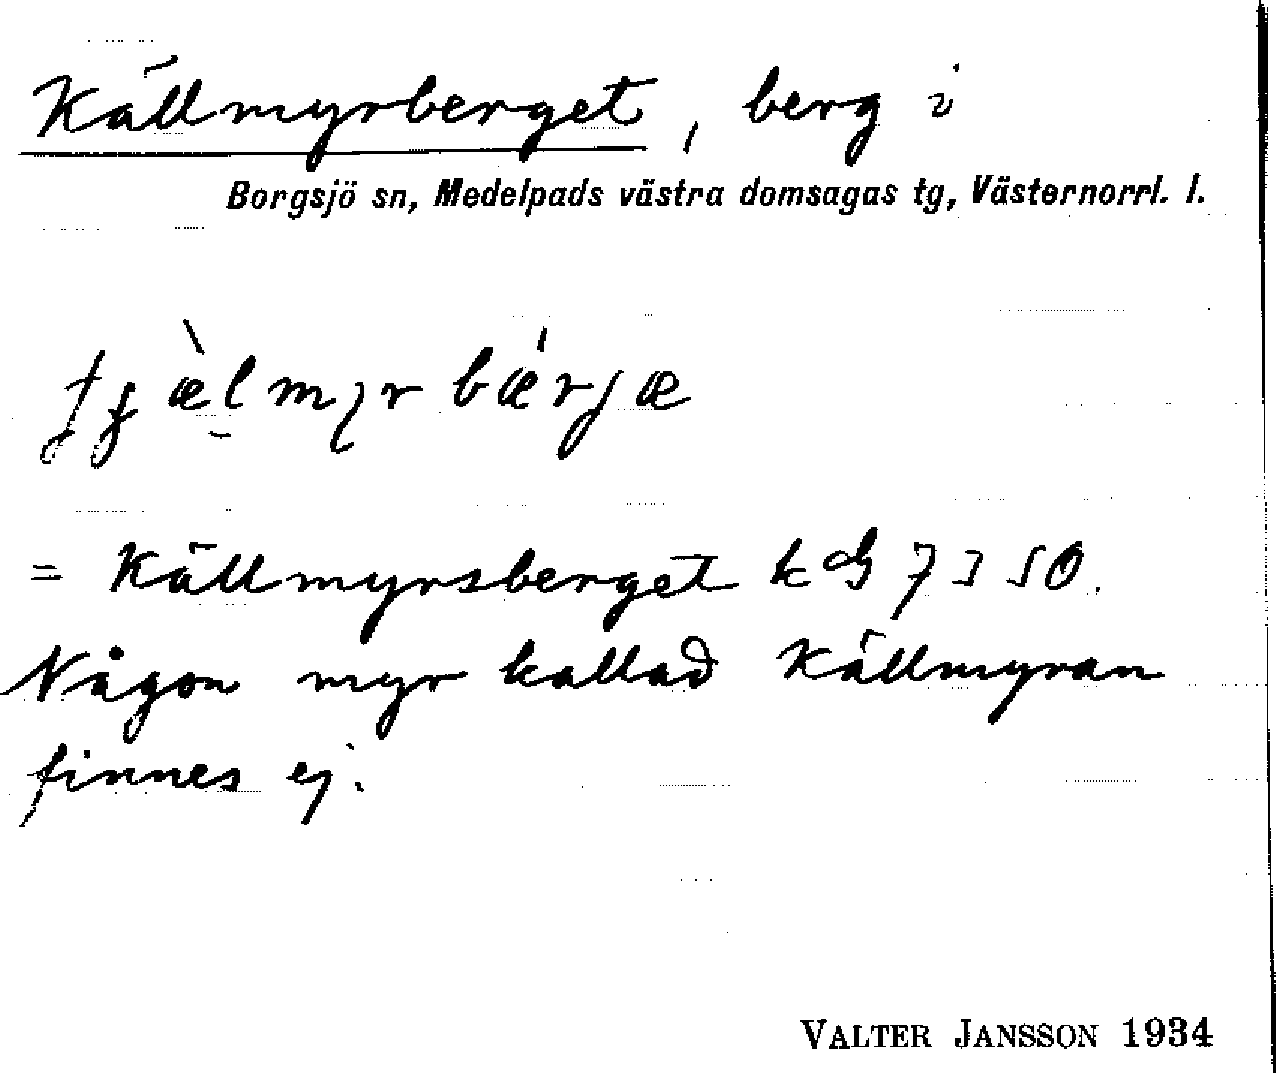 Källmyrberget, berg i
Borgsjö sn, Medelpads västra domsagas tg, Västernorrl. l.
= Källmyrsberget
Någon myr kallad Källmyran
finnes ej.
VALTER JANSSON 1934